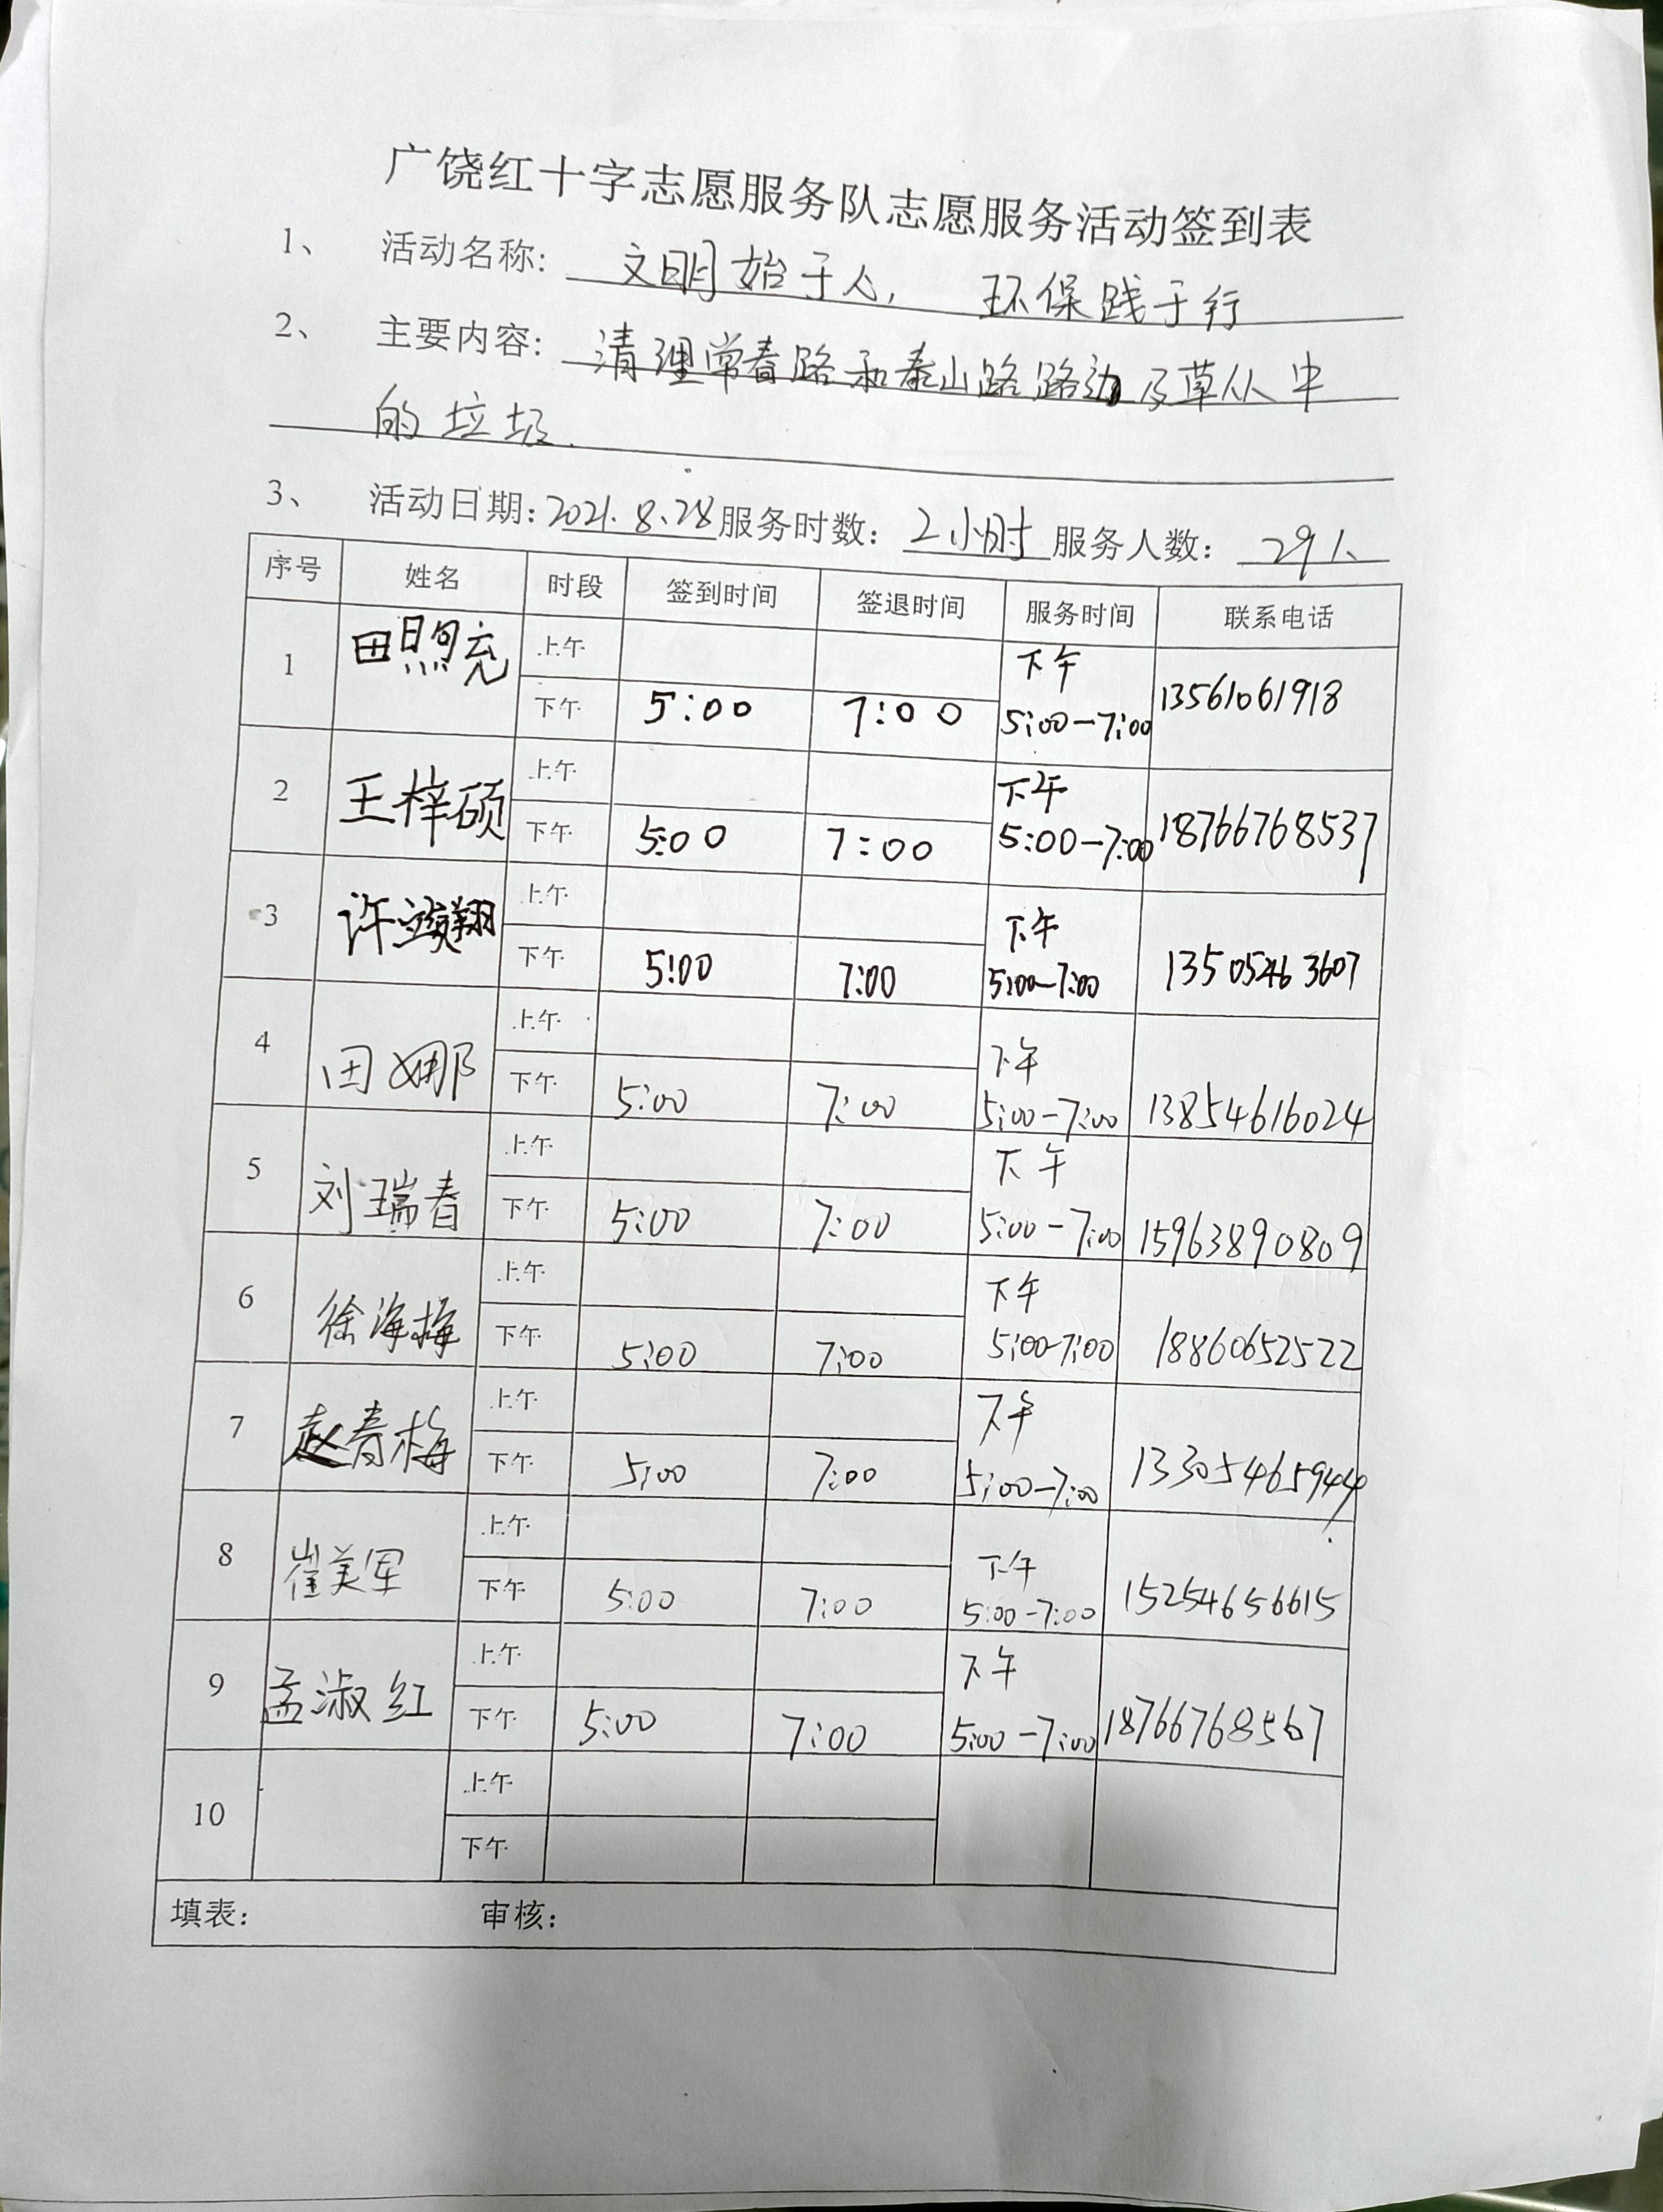 广饶红十字志愿服务队志愿服务活动签到表
1、 活动名称: 文明始于人, 环保践于行
2、 主要内容: 清理常春路和泰山路路边及草从中
的垃圾.
3、 活动日期:2021.8.28 服务时数: 2小时 服务人数: 29人
序号 姓名 时段 签到时间 签退时间 服务时间 联系电话
1 田照充 上午 下午
下午 5:00 7:00 5:00-7:00 13561061918
2 王梓硕 上午 下午
下午 5:00 7:00 5:00-7:00 18766768537
3 许 翔 上午 下午
下午 5:00 7:00 5:00-7:00 13505463607
4 田娜 上午 下午
下午 5:00 7:00 5:00-7:00 13854616024
5 刘瑞春 上午 下午
下午 5:00 7:00 5:00-7:00 15963890809
6 徐海梅 上午 下午
下午 5:00 7:00 5:00-7:00 18860652522
7 赵青梅 上午 下午
下午 5:00 7:00 5:00-7:00 13305465944
8 崔美军 上午 下午
下午 5:00 7:00 5:00-7:00 15254656615
9 孟淑红 上午 下午
下午 5:00 7:00 5:00-7:00 18766768567
10 上午
下午
填表: 审核: